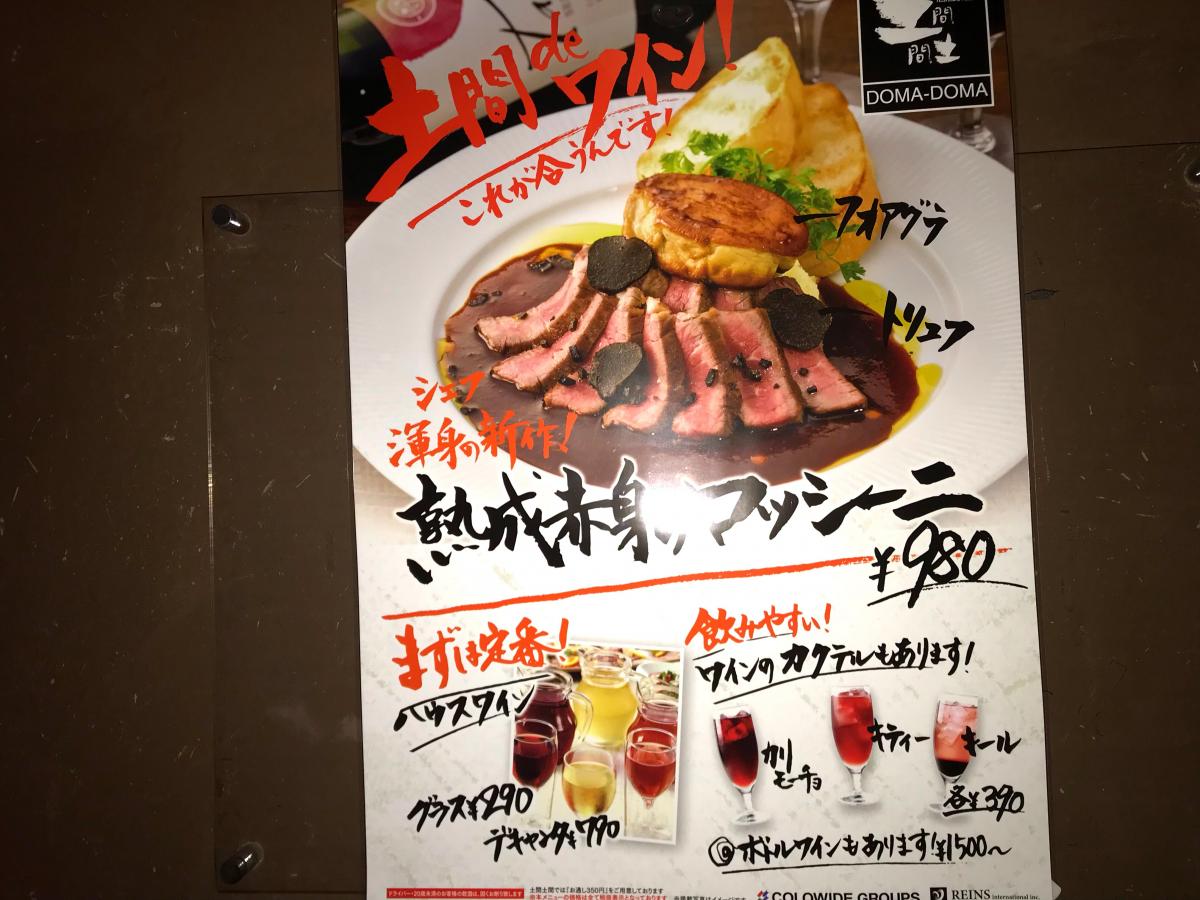 土間deワイン！
これが合うんです！
土間
間土
DOMA-DOMA
フォアグラ
トリュフ
シェフ
渾身の新作！
熟成赤身のロッシーニ
¥980
まずは定番！
ハウスワイン
グラス¥290
デキャンタ¥790
飲みやすい！
ワインのカクテルもあります！
カリ
モーチョ
キティー
キール
各¥390
@ボトルワインもあります！¥1500〜
ドライバー・20歳未満のお客様の飲酒は、固くお断り致します
土間土間では「お通し350円」をご用意しております
※本メニューの価格は全て税抜表示となっております
COLOWIDE GROUPS
REINS international inc.